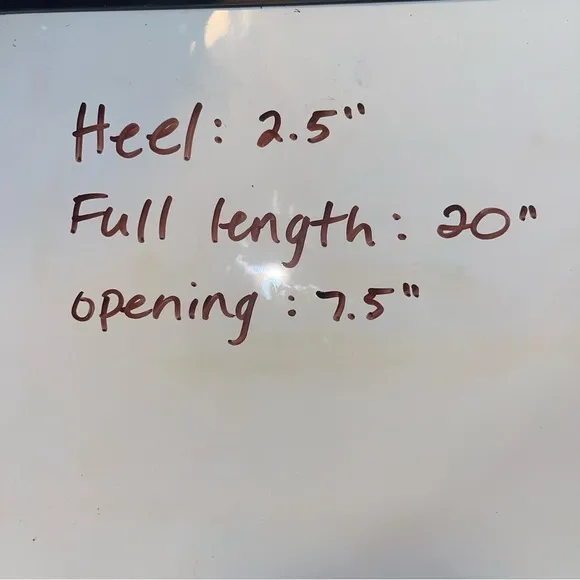 Heel: 2.5"
Full length: 20"
opening: 7.5"